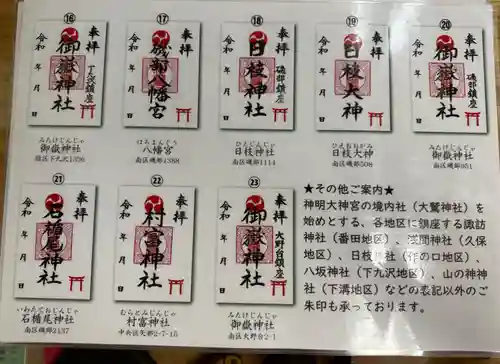 ⑯
奉拝
御嶽神社
下九沢鎮座
令和 年 月 日
みたけじんじゃ
御嶽神社
緑区下九沢1326
⑰
奉拝
磯部八幡宮
令和 年 月 日
はちまんぐう
八幡宮
南区磯部1388
⑱
奉拝
日枝神社
磯部鎮座
令和 年 月 日
ひえじんじゃ
日枝神社
南区磯部1114
⑲
奉拝
日枝大神
令和 年 月 日
日枝大神
南区磯部508
⑳
奉拝
御嶽神社
磯部鎮座
令和 年 月 日
みたけじんじゃ
御嶽神社
南区磯部851
㉑
奉拝
石楯尾神社
令和 年 月 日
いわたておじんじゃ
石楯尾神社
南区磯部2137
㉒
奉拝
村富神社
令和 年 月 日
むらとみじんじゃ
村富神社
中央区矢部2-7-15
㉓
奉拝
御嶽神社
大野台鎮座
令和 年 月 日
みたけじんじゃ
御嶽神社
南区大野台2-1
★その他ご案内★
神明大神宮の境内社(大鷲神社)を
始めとする、各地区に鎮座する諏訪
神社(番田地区)、浅間神社(久保
地区)、日枝神社(作の口地区)、
八坂神社(下九沢地区)、山の神神
社(下溝地区)などの表記以外のご
朱印も承っております。